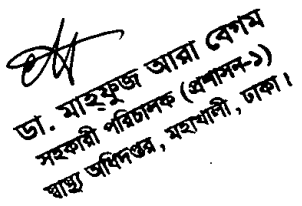 ডা. মাহ্‌ফুজ আরা বেগম
সহকারী পরিচালক (প্রশাসন-১)
স্বাস্থ্য অধিদপ্তর, মহাখালী, ঢাকা।